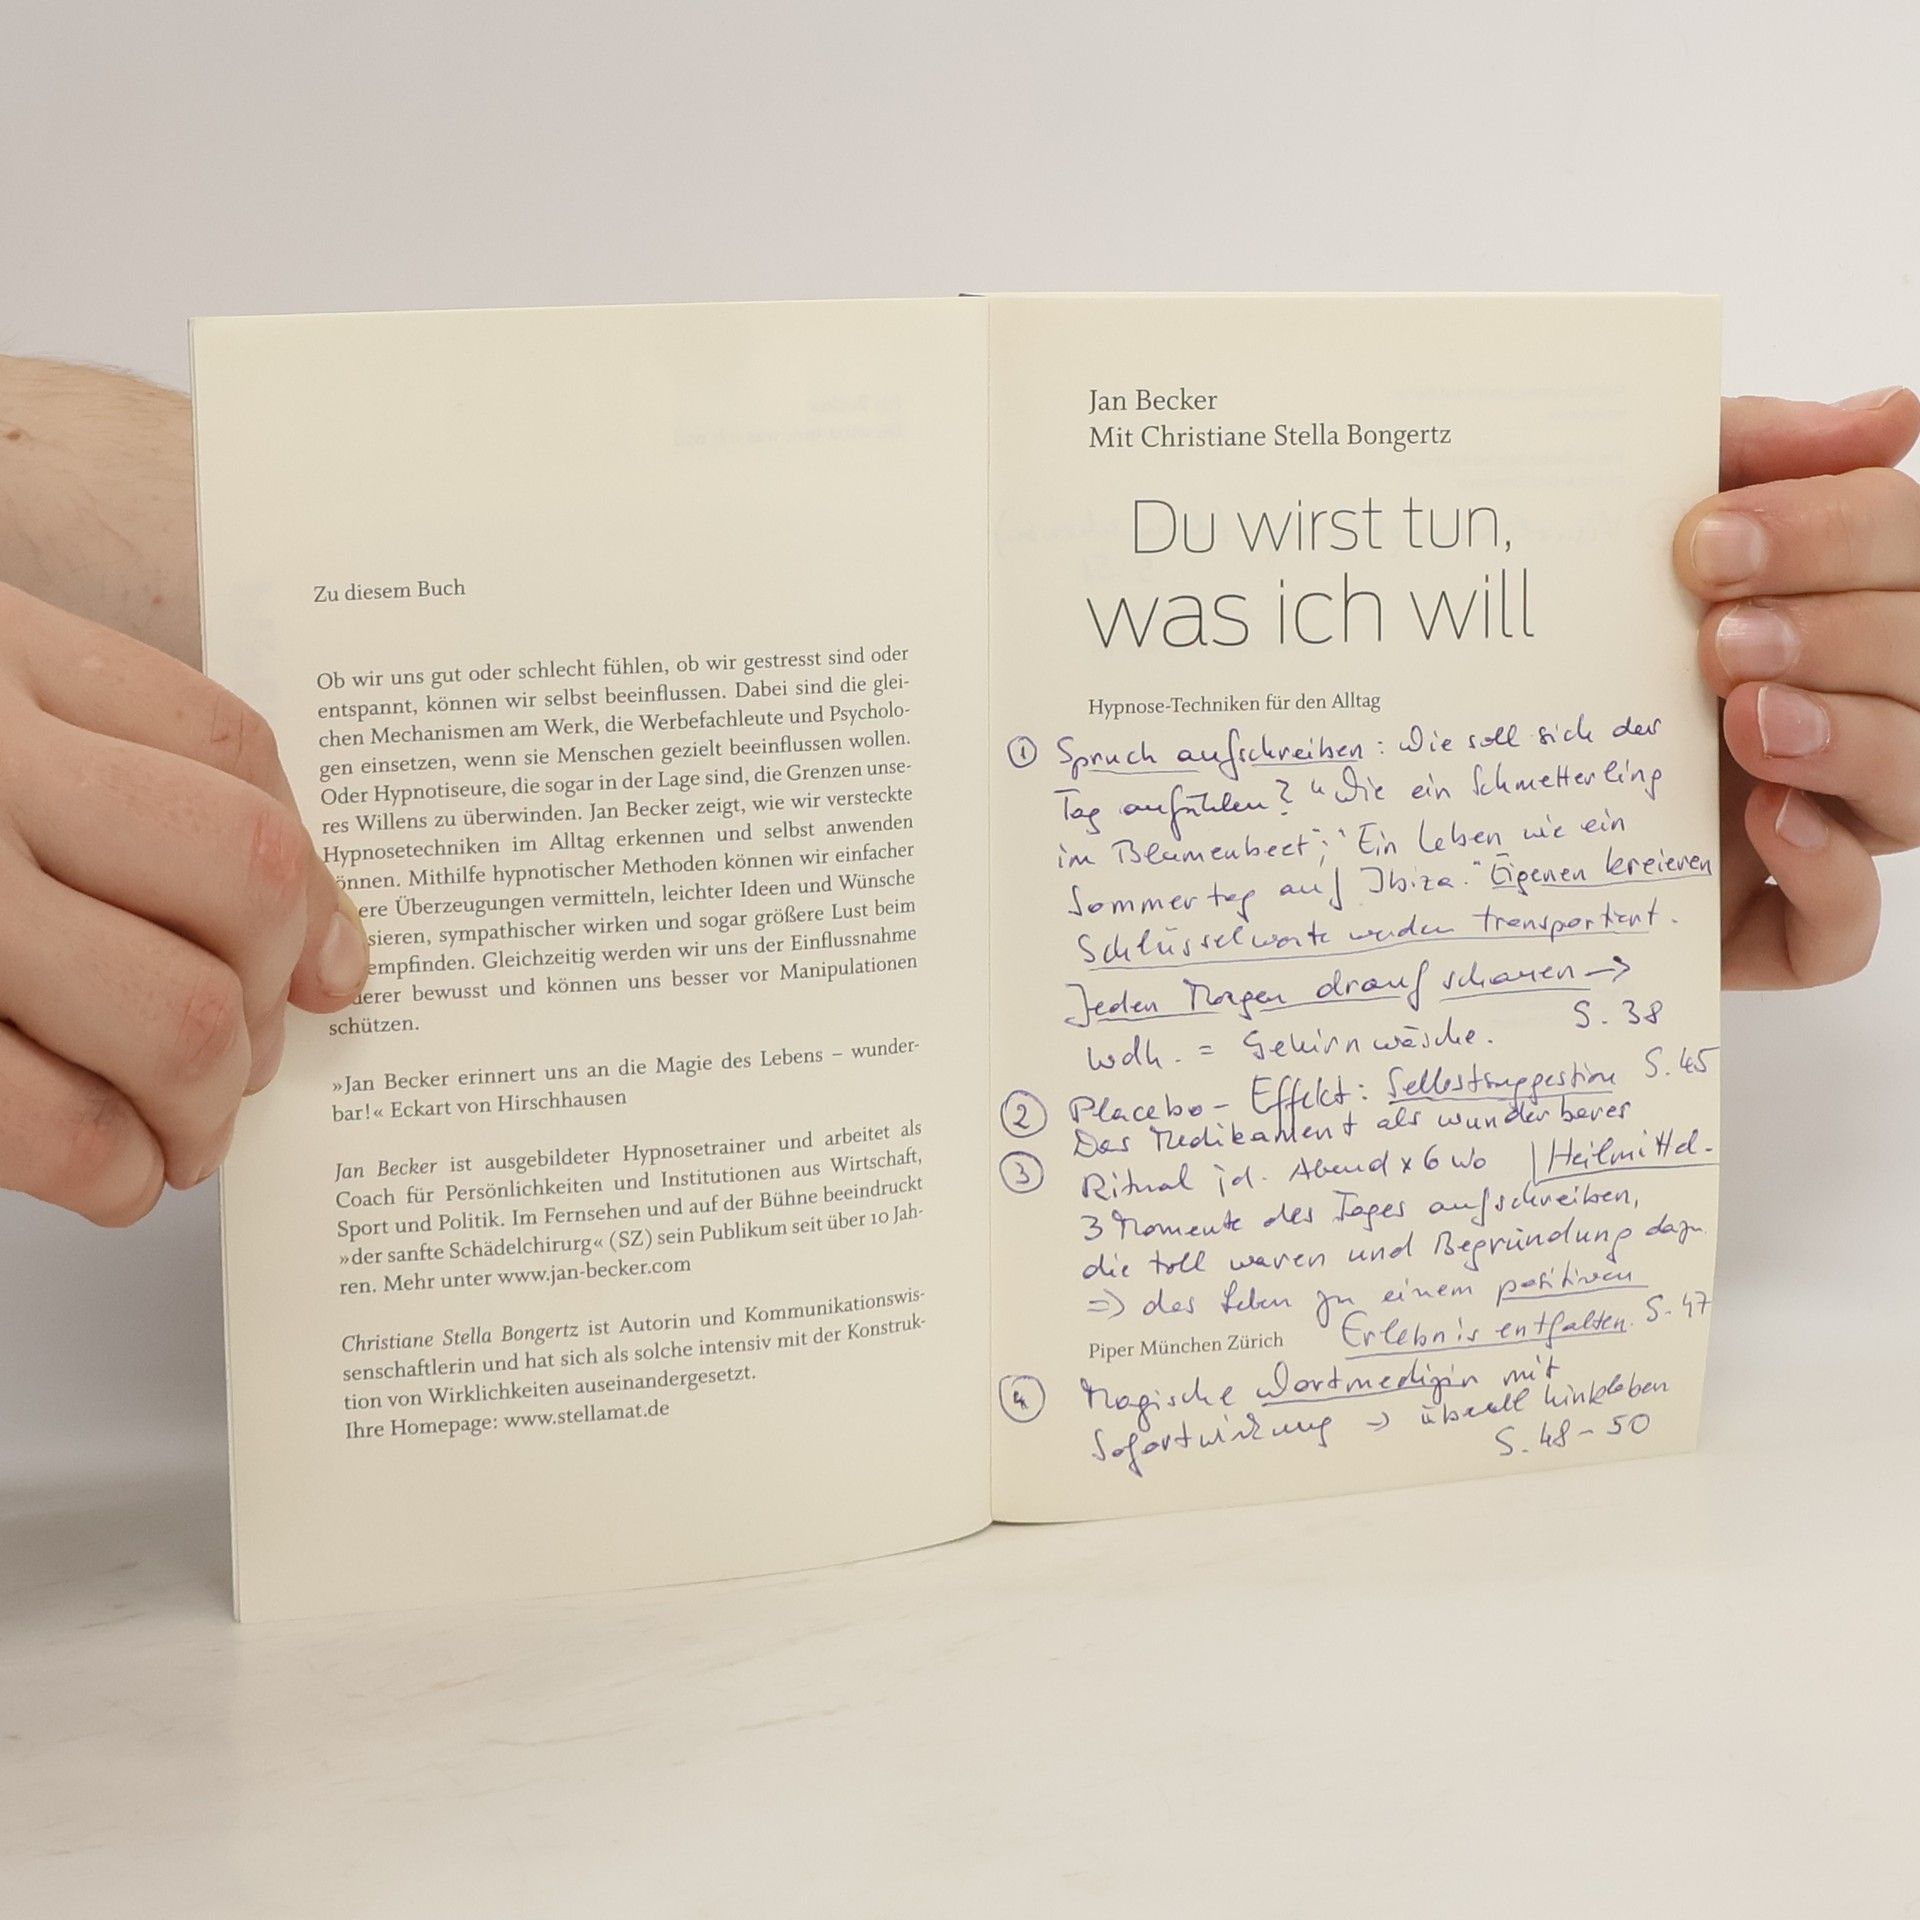 Zu diesem Buch
Ob wir uns gut oder schlecht fühlen, ob wir gestresst sind oder
entspannt, können wir selbst beeinflussen. Dabei sind die glei-
chen Mechanismen am Werk, die Werbefachleute und Psycholo-
gen einsetzen, wenn sie Menschen gezielt beeinflussen wollen.
Oder Hypnotiseure, die sogar in der Lage sind, die Grenzen unse-
res Willens zu überwinden. Jan Becker zeigt, wie wir versteckte
Hypnosetechniken im Alltag erkennen und selbst anwenden
önnen. Mithilfe hypnotischer Methoden können wir einfacher
ere Überzeugungen vermitteln, leichter Ideen und Wünsche
sieren, sympathischer wirken und sogar größere Lust beim
empfinden. Gleichzeitig werden wir uns der Einflussnahme
derer bewusst und können uns besser vor Manipulationen
schützen.
»Jan Becker erinnert uns an die Magie des Lebens – wunder-
bar!« Eckart von Hirschhausen
Jan Becker ist ausgebildeter Hypnosetrainer und arbeitet als
Coach für Persönlichkeiten und Institutionen aus Wirtschaft,
Sport und Politik. Im Fernsehen und auf der Bühne beeindruckt
»der sanfte Schädelchirurg« (SZ) sein Publikum seit über 10 Jah-
ren. Mehr unter www.jan-becker.com
Christiane Stella Bongertz ist Autorin und Kommunikationswis-
senschaftlerin und hat sich als solche intensiv mit der Konstruk-
tion von Wirklichkeiten auseinandergesetzt.
Ihre Homepage: www.stellamat.de
Jan Becker
Mit Christiane Stella Bongertz
Du wirst tun,
was ich will
Hypnose-Techniken für den Alltag
① Spruch aufschreiben: Wie soll sich der
Tag anfühlen? "Wie ein Schmetterling
im Blumenbeet"; "Ein Leben wie ein
Sommertag auf Ibiza." Eigenen kreieren
Schlüsselworte werden transportiert.
Jeden Morgen drauf schauen →
Wdh. = Gehirnwäsche. S. 38
② Placebo-Effekt: Selbstsuggestion S. 45
Das Medikament als wunderbares
Heilmittel.
③ Ritual jd. Abend x 6 Wo
3 Momente des Tages aufschreiben,
die toll waren und Begründung dazu.
=> das Leben zu einem positiven
Erlebnis entfalten. S. 47
Piper München Zürich
④ Magische Wortmedizin mit
Sofortwirkung => überall hinkleben
S. 48 - 50